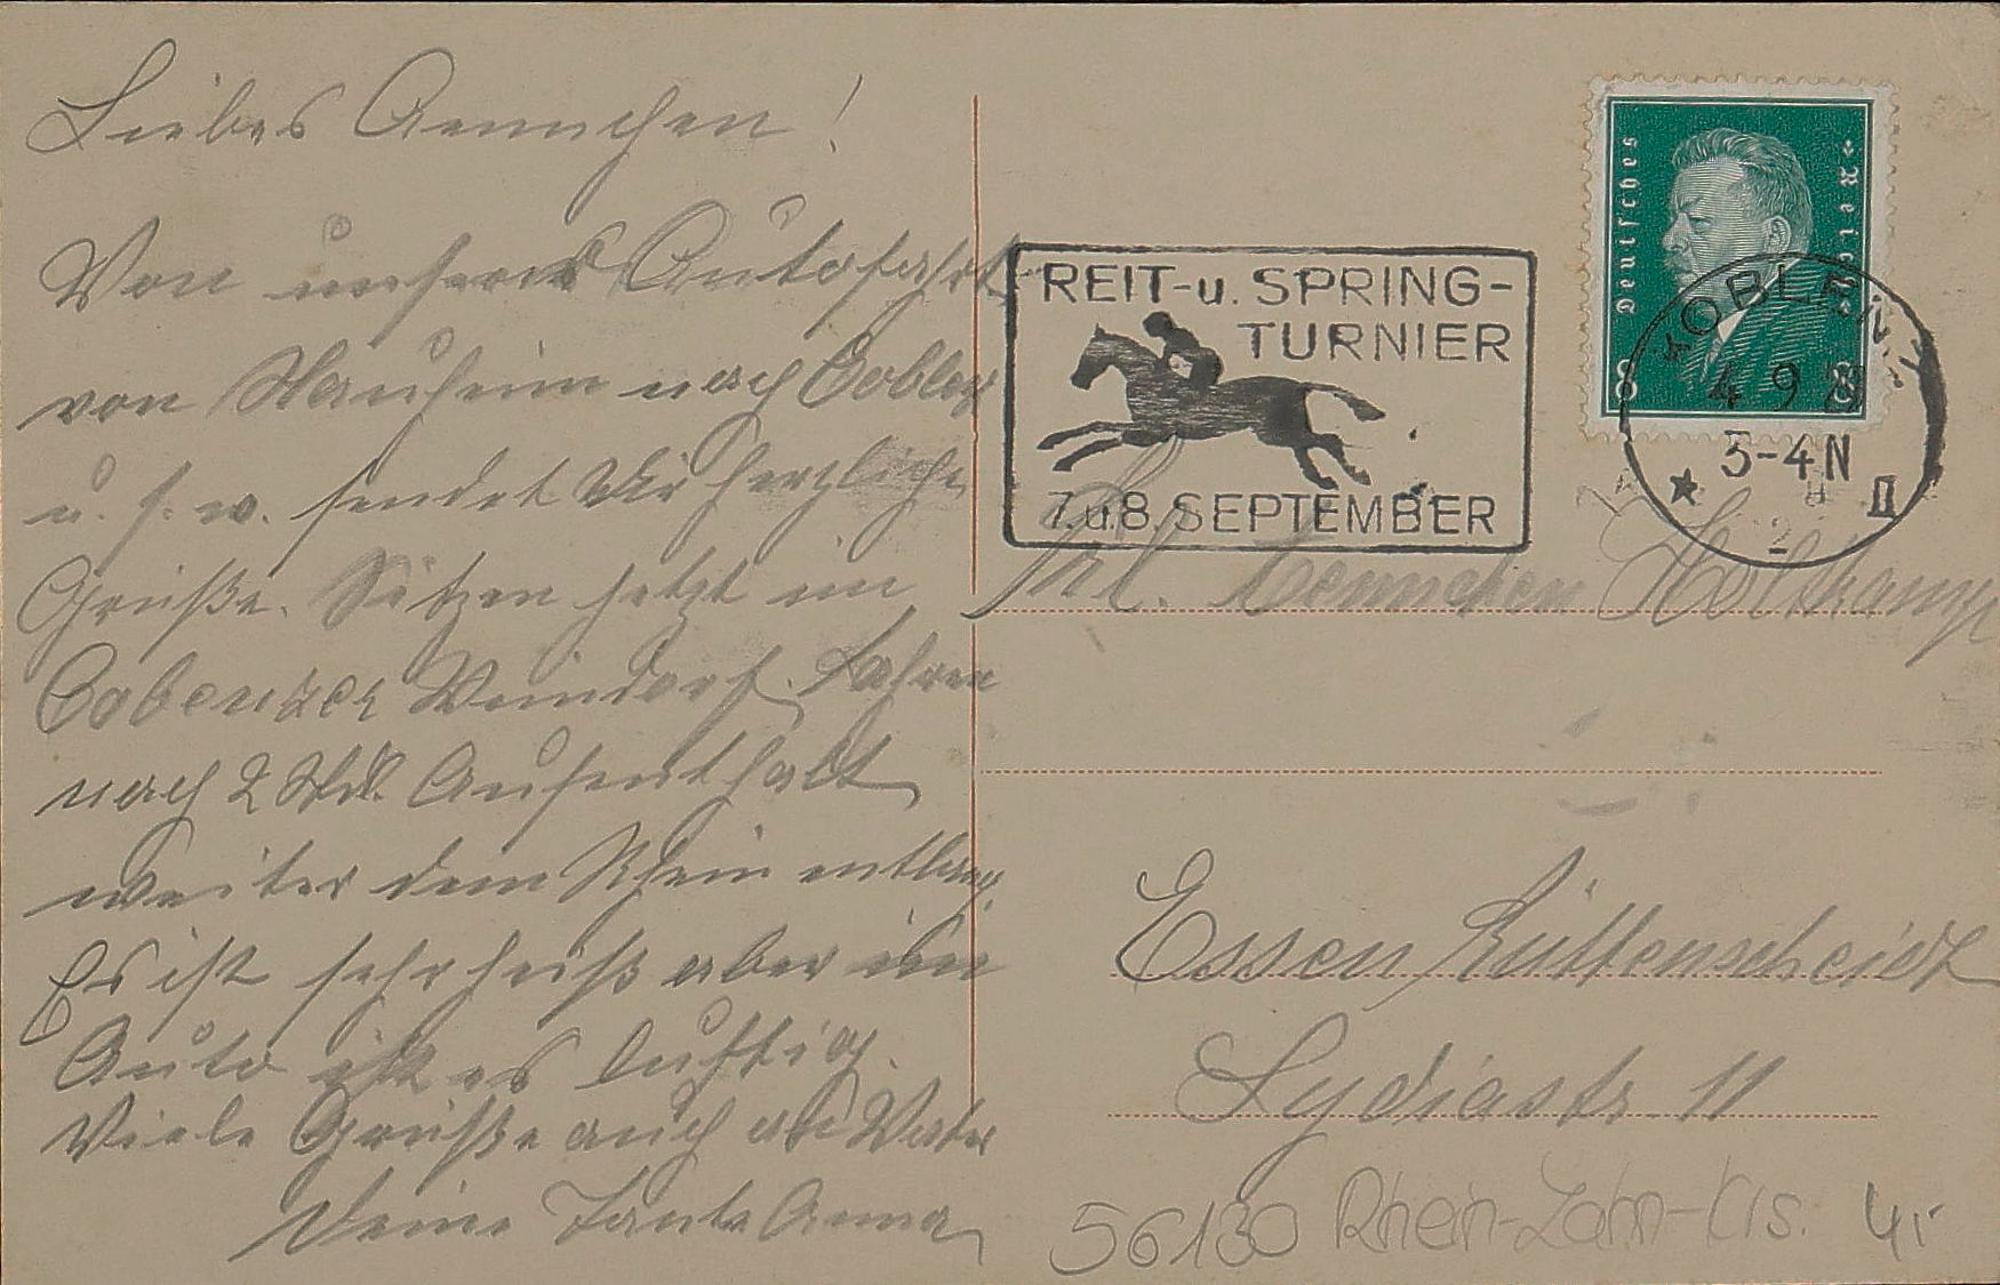 Liebes Aennchen!
Von unserer Autofahrt
von Nauheim nach Coblenz
u. s. w. sendet Dir herzliche
Grüße. Sitzen jetzt im
Cobenzer Weindorf. Fahren
nach 2 Std. Aufenthalt
weiter dem Rhein entlang.
Es ist sehr heiß aber im
Auto ist es luftig.
Viele Grüße auch an Vater
Deine Tante Anna
REIT-u. SPRING-
TURNIER
7.u.8.SEPTEMBER
Deutsches Reich
8 8
KOBLENZ
4 9 29
3-4 N
* II
Frl. Aennchen Holtkamp
Essen Rüttenscheidt
Lydiastr. 11
56130 Rhein-Lahn-Krs. 4,-